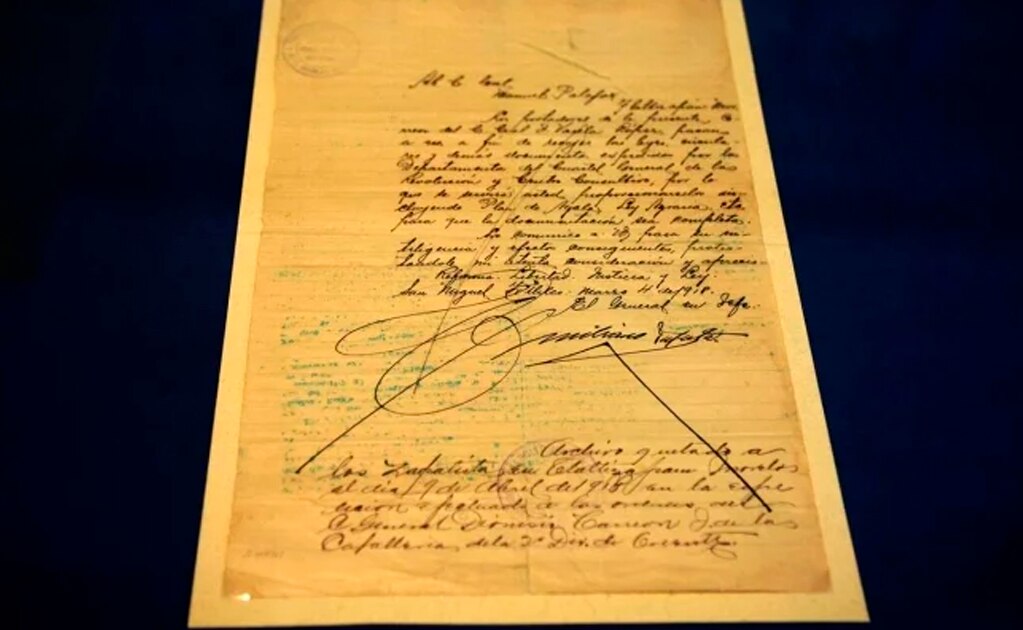 Al C. Gral.
Manuel Palafox
Tlaltizapán Mor.
Los portadores de la presente
del C. Gral. pasan
a esa a fin de recoger las leyes,
y demás documentos expedidos por los
Departamentos del Cuartel General de la
Revolución y Centro Consultivo, por lo
que se servirá usted proporcionarselos in-
cluyendo Plan de Ayala, Ley Agraria, etc.
para que la documentación sea completa.
Lo comunico a Ud para su in-
teligencia y efectos consiguientes, protes-
tandole mi atenta consideración y aprecio.
Reforma Libertad Justicia y Ley
San Miguel marzo 4 de 1918.
El General en Jefe.
Emiliano Zapata.
Archivo quitado a
los Zapatistas en Tlaltizapam Morelos
el dia 9 de Abril del 918 en la
a las ordenes del
C. General Dionisio Carreon J. de las
Caballeria de la 2a Div. de